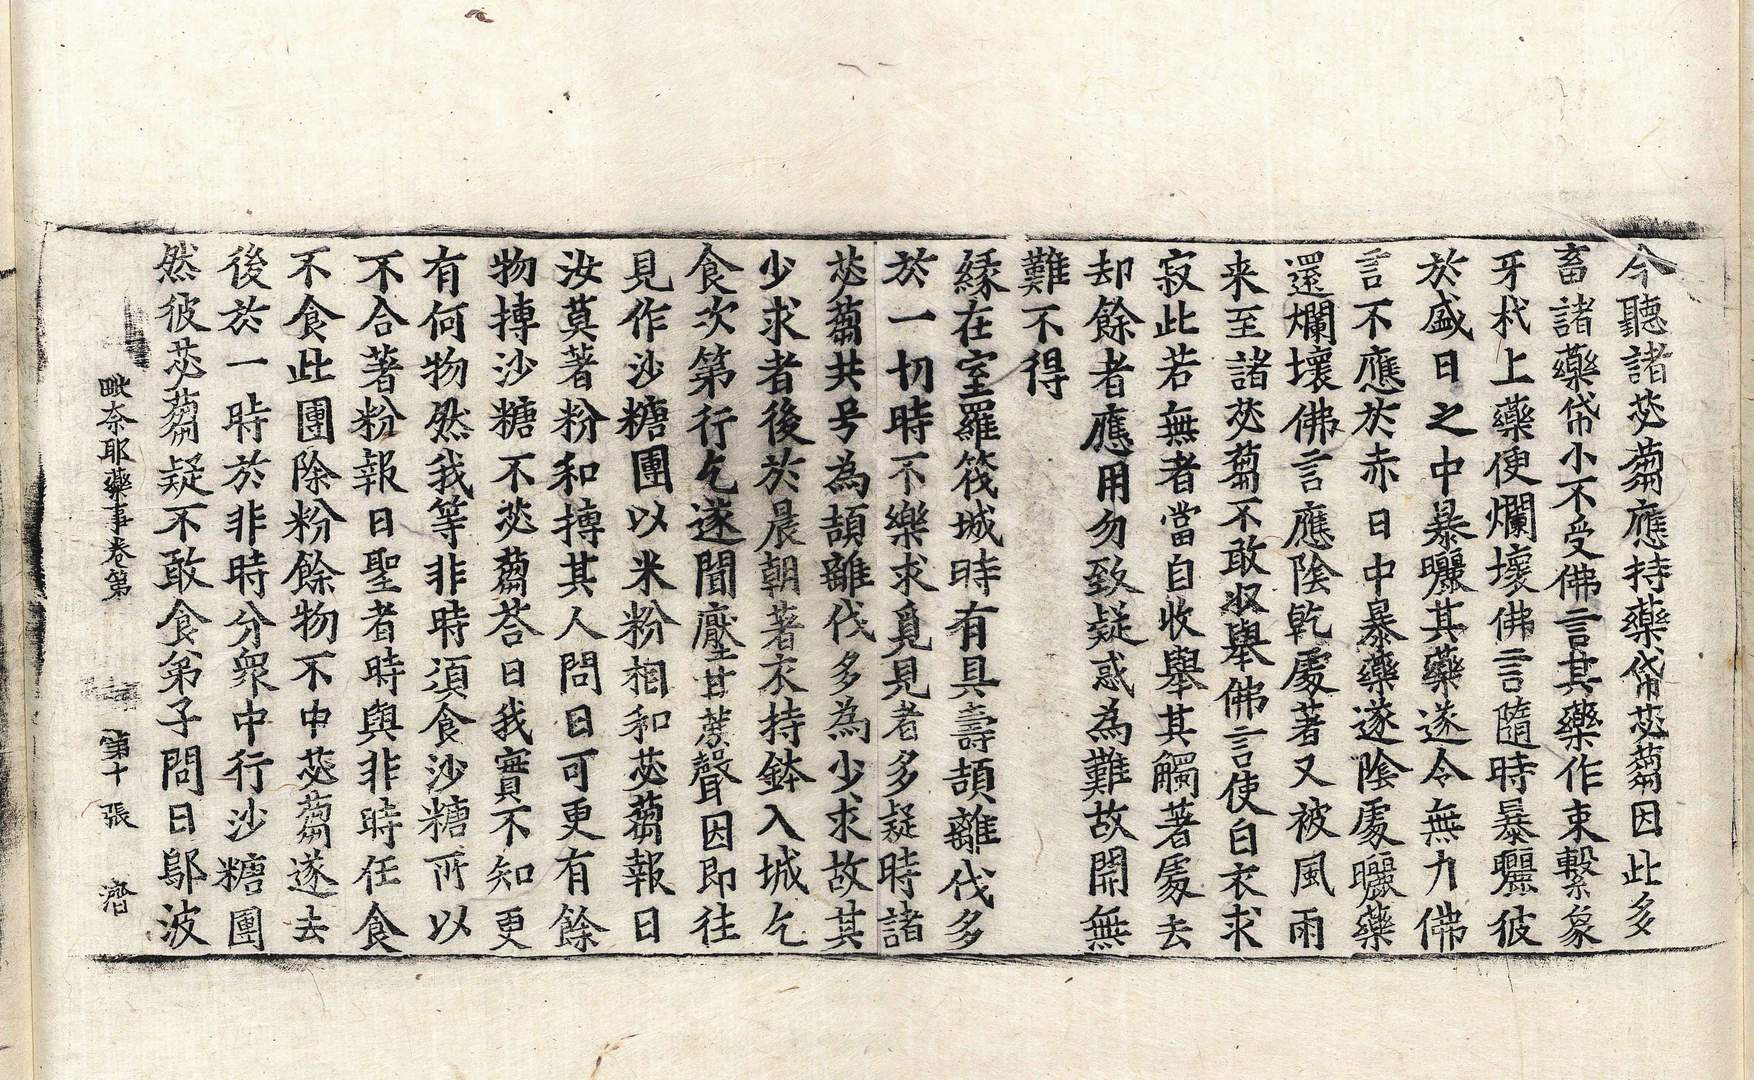 今聽諸苾蒭應持藥帒苾蒭因此多
畜諸藥帒小不受佛言其藥作束繫象
牙杙上藥便爛壞佛言隨時暴曬彼
於盛日之中暴曬其藥遂令無力佛
言不應於赤日中暴藥遂陰處曬藥
還爛壞佛言應陰乾處著又被風雨
来至諸苾蒭不敢收舉佛言使白衣求
寂此若無者當自收舉其觸著處去
却餘者應用勿致疑惑為難故開無
難不得
緣在室羅筏城時有具壽頡離伐多
於一切時不樂求覓見者多疑時諸
苾蒭共号為頡離伐多為少求故其
少求者後於晨朝著衣持鉢入城乞
食次第行乞遂聞壓甘蔗聲因即往
見作沙糖團以米粉相和苾蒭報曰
汝莫著粉和摶其人問曰可更有餘
物摶沙糖不苾蒭荅曰我實不知更
有何物然我等非時須食沙糖所以
不合著粉報曰聖者時與非時任食
不食此團除粉餘物不中苾蒭遂去
後於一時於非時分衆中行沙糖團
然彼苾蒭疑不敢食弟子問曰鄔波
毗奈耶藥事卷第 第十張 濟